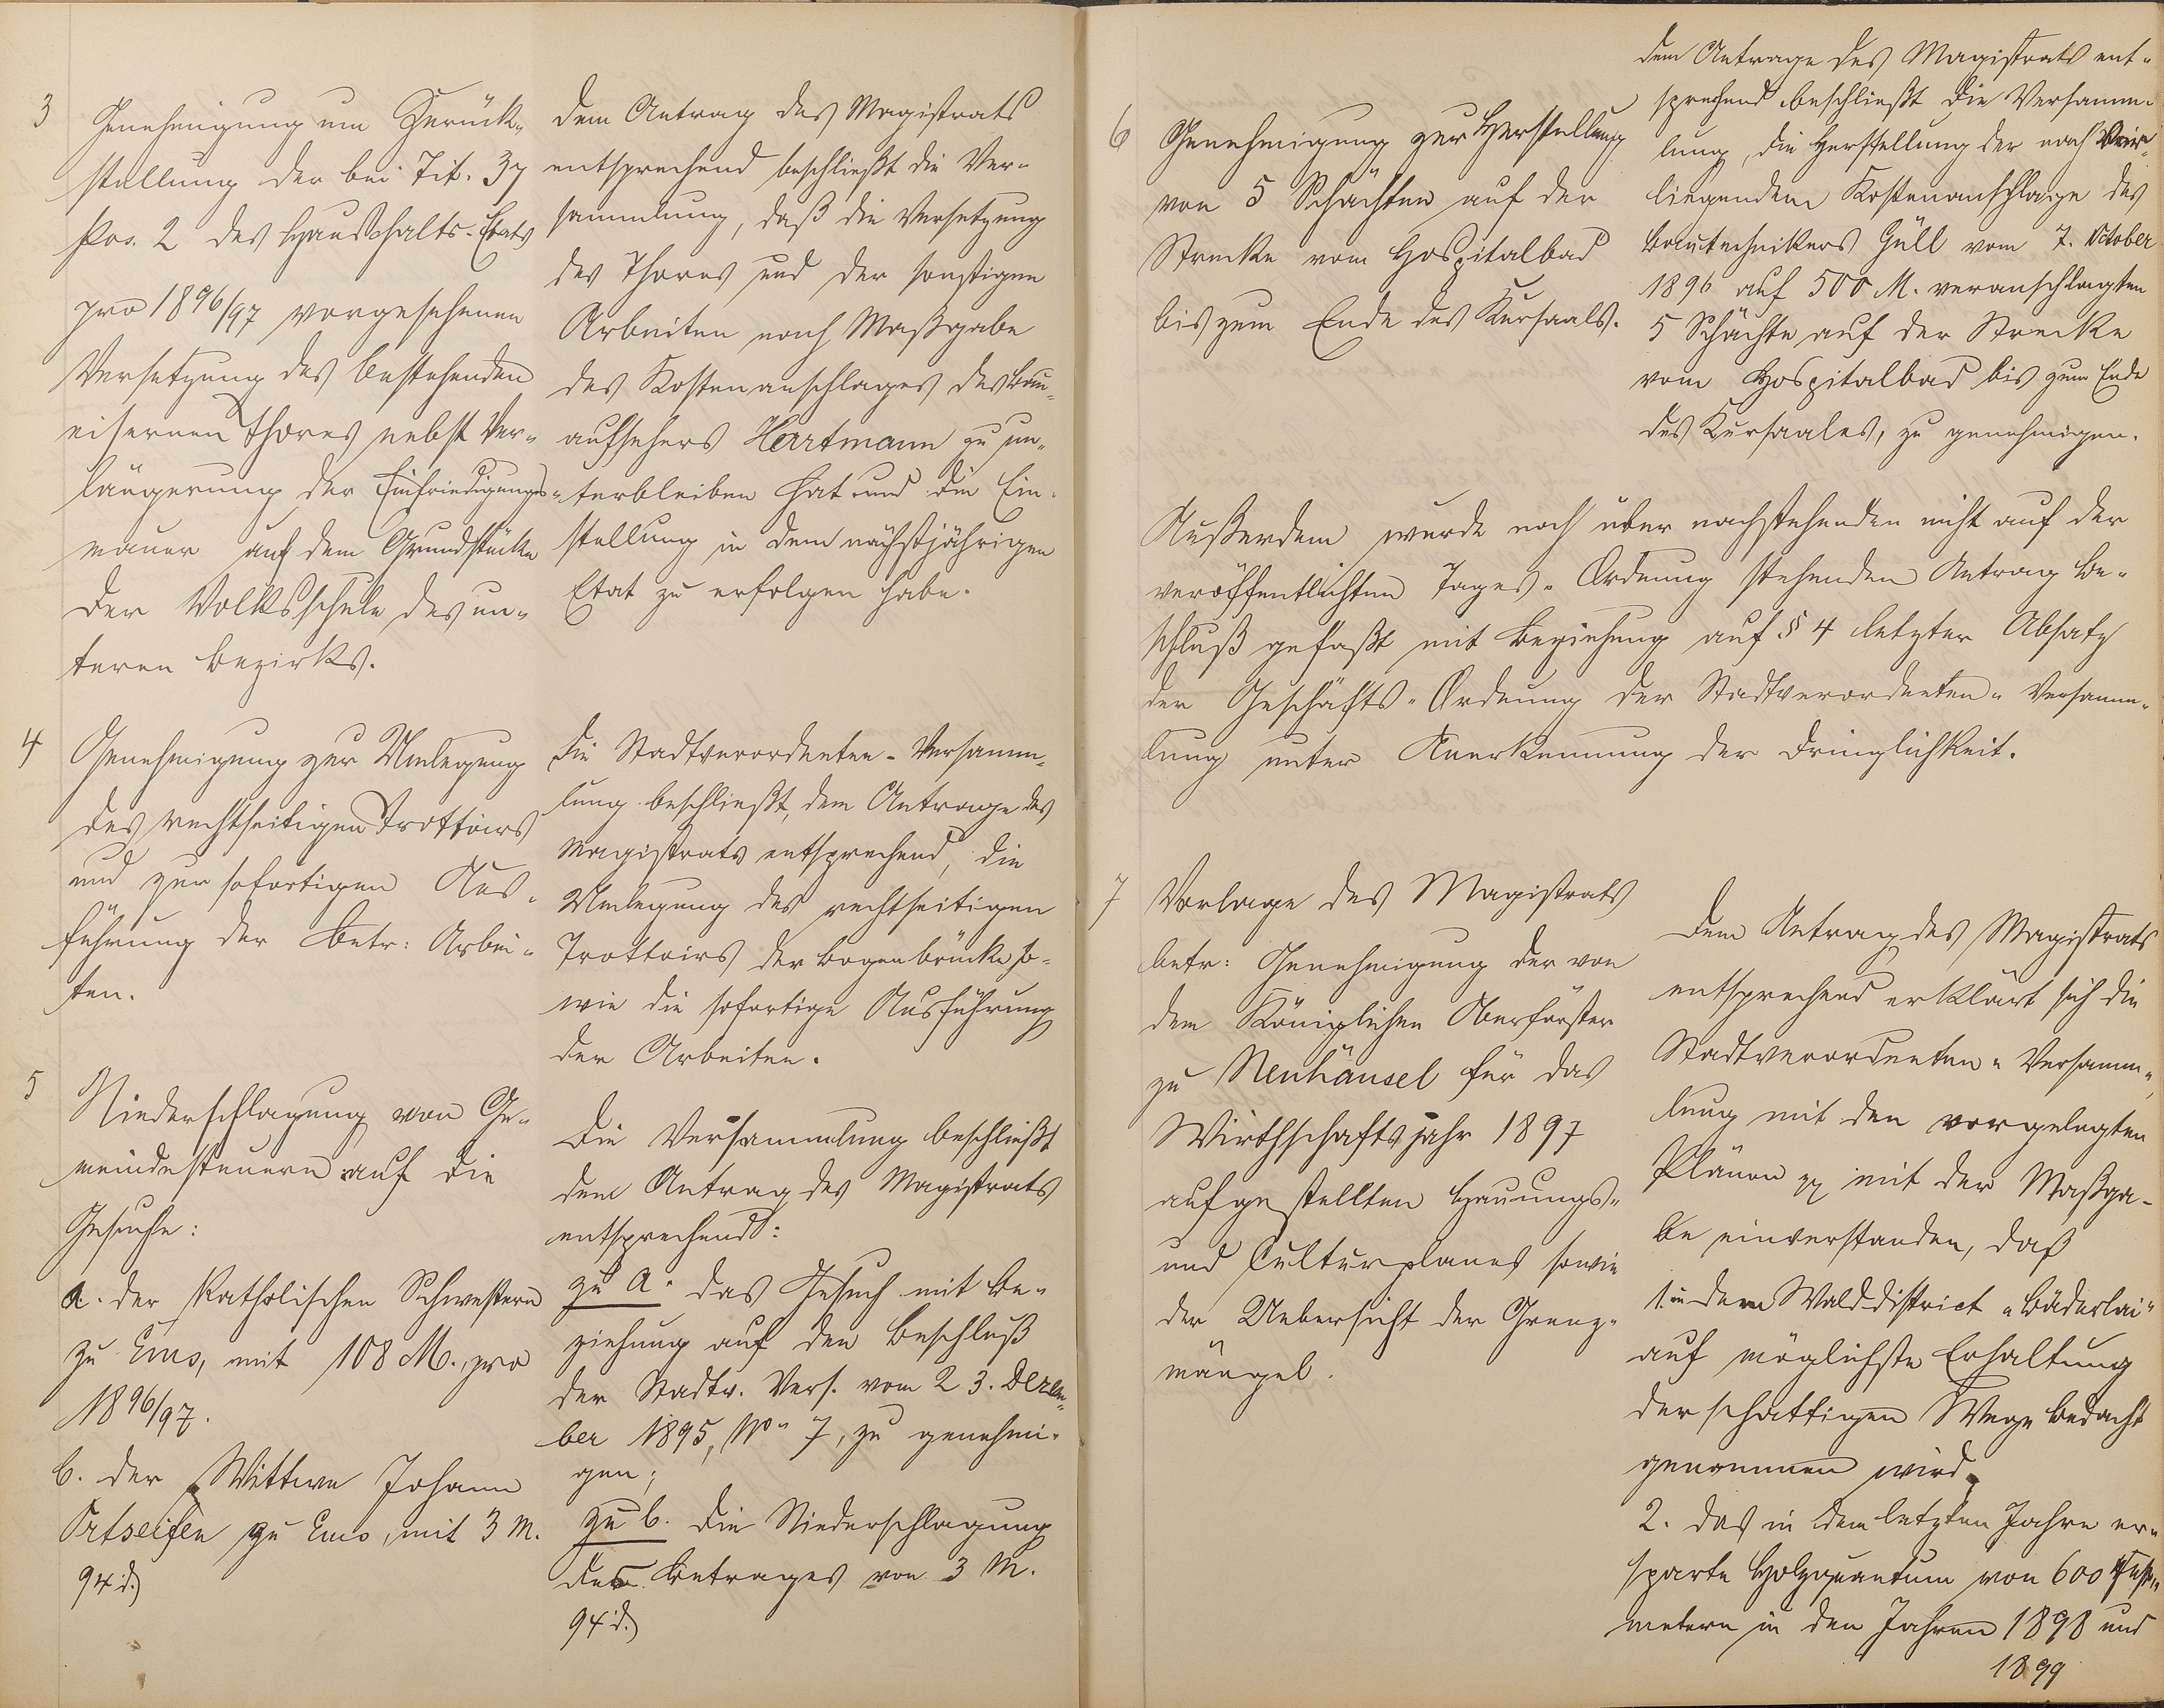 3
Genehmigung um Zurück-
stellung der bei Tit. 37
Pos. 2 des Haushalts-Etats
pro 1896/97 vorgesehenen
Versetzung des bestehenden
eisernen Thores nebst Ver-
längerung der Einfriedigungs-
mauer auf dem Grundstücke
der Volksschule des un-
teren Bezirks.
Dem Antrag des Magistrats
entsprechend beschließt die Ver-
sammlung, daß die Versetzung
des Thores und der sonstigen
Arbeiten nach Maßgabe
des Kostenanschlages des Bau-
aufsehers Hartmann zu un-
terbleiben hat und die Ein-
stellung in dem nächstjährigen
Etat zu erfolgen habe.
4
Genehmigung zur Umlegung
des rechtseitigen Trottoirs
und zur sofortigen Aus-
führung der betr: Arbei-
ten.
Die Stadtverordneten-Versamm-
lung beschließt, dem Antrage des
Magistrats entsprechend, die
Umlegung des rechtseitigen
Trottoirs der Bogenbrücke so-
wie die sofortige Ausführung
der Arbeiten.
5
Niederschlagung von Ge-
meindesteuern auf die
Gesuche:
a. der Katholischen Schwestern
zu Ems, mit 108 M. pro
1896/97.
b. der Wittwe Johann
Ortseifen zu Ems, mit 3 M.
94 d.)
Die Versammlung beschließt
dem Antrag des Magistrats
entsprechend:
zu a. das Gesuch mit Be-
ziehung auf den Beschluß
der Stadtv. Vers. vom 23. Dezem-
ber 1895, No 7, zu genehmi-
gen;
zu b. die Niederschlagung
des Betrages von 3 M.
94 d.)
6
Genehmigung zur Herstellung
von 5 Schächten auf der
Strecke vom Hospitalbad
bis zum Ende des Kursaals.
dem Antrage des Magistrats ent-
sprechend beschließt die Versamm-
lung, die Herstellung der nach vor-
liegendem Kostenanschlage des
Bautechnikers Güll vom 7. October
1896 auf 500 M. veranschlagten
5 Schächte auf der Strecke
vom Hospitalbad bis zum Ende
des Kursaales, zu genehmigen.
Außerdem wurde noch über nachstehenden nicht auf der
veröffentlichten Tages-Ordnung stehenden Antrag Be-
schluß gefaßt mit Beziehung auf § 4 letzter Absatz
der Geschäfts-Ordnung der Stadtverordneten-Versamm-
lung unter Anerkennung der Dringlichkeit.
7
Vorlage des Magistrats
betr: Genehmigung der von
dem Königlichen Oberförster
zu Neuhäusel für das
Wirthschaftsjahr 1897
aufgestellten Hauungs-
und Culturplanes sowie
der Uebersicht der Grenz-
mängel.
Dem Antrag des Magistrats
entsprechend erklärt sich die
Stadtverordneten-Versamm-
lung mit den vorgelegten
Plänen pp mit der Maßga-
be einverstanden, daß
1. in dem Walddistrict "Bäderlai"
auf möglichste Erhaltung
der schattigen Wege bedacht
genommen wird.
2. das in dem letzten Jahre er-
sparte Holzquantum von 600 Fest-
metern in den Jahren 1898 und
1899